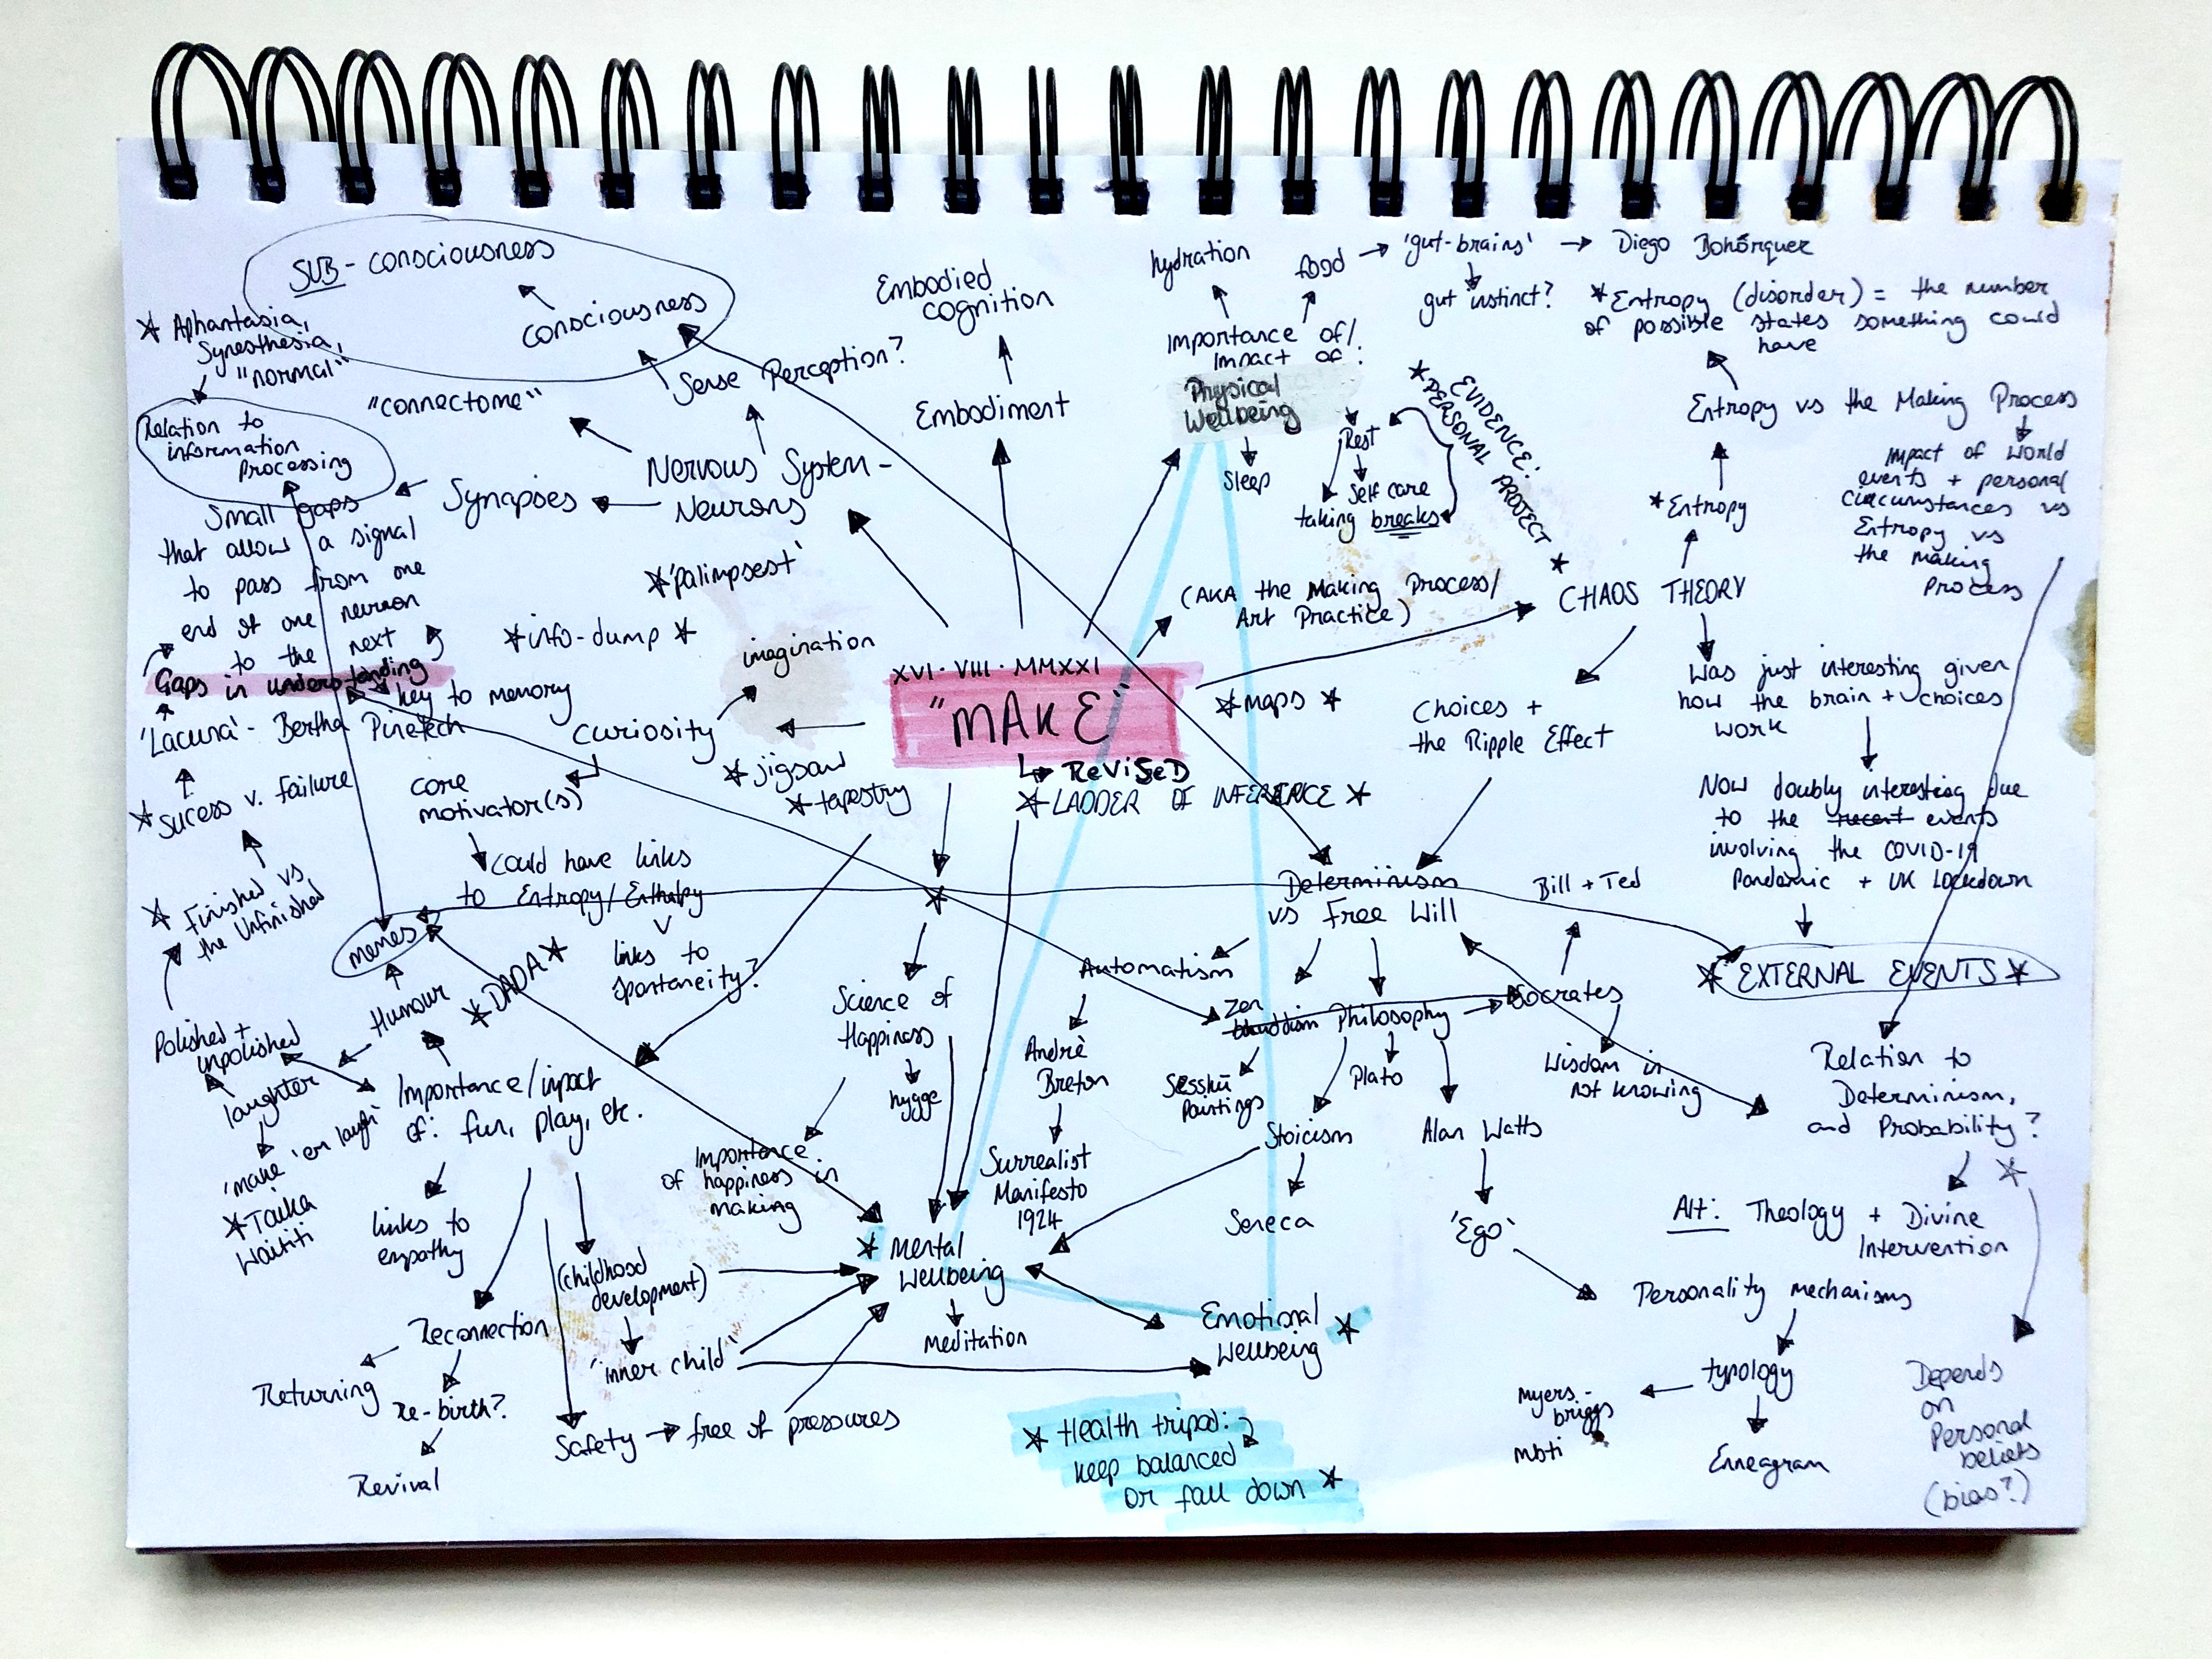 SUB - consciousness
consciousness
* Aphantasia,
Synesthesia,
"normal"
Relation to
information
processing
"connectome"
Sense Perception?
Nervous System -
Neurons
Synapses
Small gaps
that allow a signal
to pass from one
end of one neuron
to the next
Gaps in understanding
key to memory
'Lacuna' - Bertha Pinetech
* Sucess v. failure
* Finished vs
the Unfinished
Polished +
unpolished
*'palimpsest'
*info-dump *
imagination
curiosity
* jigsaw
* tapestry
core
motivator(s)
could have links
to Entropy/Enthalpy
links to
spontaneity?
memes
Humour
*DADA*
laughter
'make 'em laugh'
*Taika
Waititi
Importance/impact
of: fun, play, etc.
links to
empathy
Reconnection
Returning
Re-birth?
Revival
(childhood
development)
'inner child'
Safety → free of pressures
Embodied
cognition
Embodiment
XVI · VIII · MMXXI
"MAKE"
↳ REVISED
* LADDER OF INFERENCE *
*
Science of
Happiness
hygge
Importance
of happiness in
making
* Mental
Wellbeing
Meditation
hydration
food → 'gut-brains' → Diego Bohórquez
gut instinct?
Importance of/
Impact of:
Physical
Wellbeing
Sleep
Rest
Self care
taking breaks
* EVIDENCE:
PERSONAL PROJECT *
(AKA the Making Process/
Art Practice)
* maps *
CHAOS THEORY
*Entropy
Entropy vs the Making Process
*Entropy (disorder) = the number
of possible states something could
have
impact of world
events + personal
circumstances vs
Entropy vs
the making
process
Choices +
the Ripple Effect
Was just interesting given
how the brain + choices
work
Now doubly interesting due
to the recent events
involving the COVID-19
Pandamic + UK Lockdown
* EXTERNAL EVENTS *
Determinism
vs Free Will
Bill + Ted
Automatism
André
Breton
Surrealist
Manifesto
1924
Zen
Buddism
Philosophy
Socrates
Sesshū
Paintings
Plato
Wisdom in
not knowing
Stoicism
Seneca
Alan Watts
'Ego'
Personality mechanisms
typology
myers-
briggs
mbti
Enneagram
Relation to
Determinism,
and Probability?
*
Alt: Theology + Divine
Intervention
Depends
on
Personal
beliefs
(bias?)
Emotional *
Wellbeing
* Health tripod:
keep balanced
or fall down *